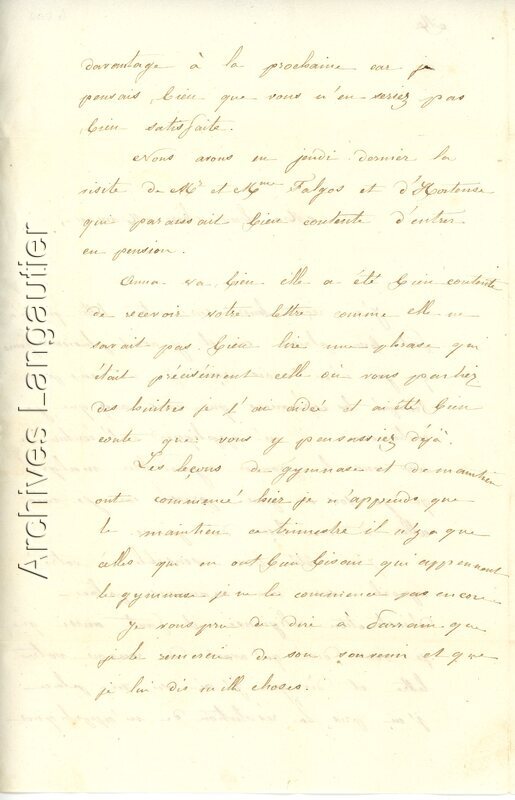 davantage à la prochaine car je
pensais bien que vous n'en seriez pas
bien satisfaite.
Nous avons eu jeudi dernier la
visite de Mr et Mme Falgos et d'Hortense
qui paraissait bien contente d'entrer
en pension.
Anna va bien elle a été bien contente
de recevoir votre lettre comme elle ne
savait pas bien lire une phrase qui
était précisément celle où vous parliez
des huîtres je l'ai aidée et ai été bien
conte que vous y pensassiez déjà.
Les leçons de gymnase et de maintien
ont commencé hier je n'apprends que
le maintien ce trimestre il n'y a que
celles qui en ont bien bisoin qui apprennent
le gymnase je ne le commence pas encore
Je vous prie de dire à que
je le remercie de son souvenir et que
je lui dis mille choses.
Archives Langautier